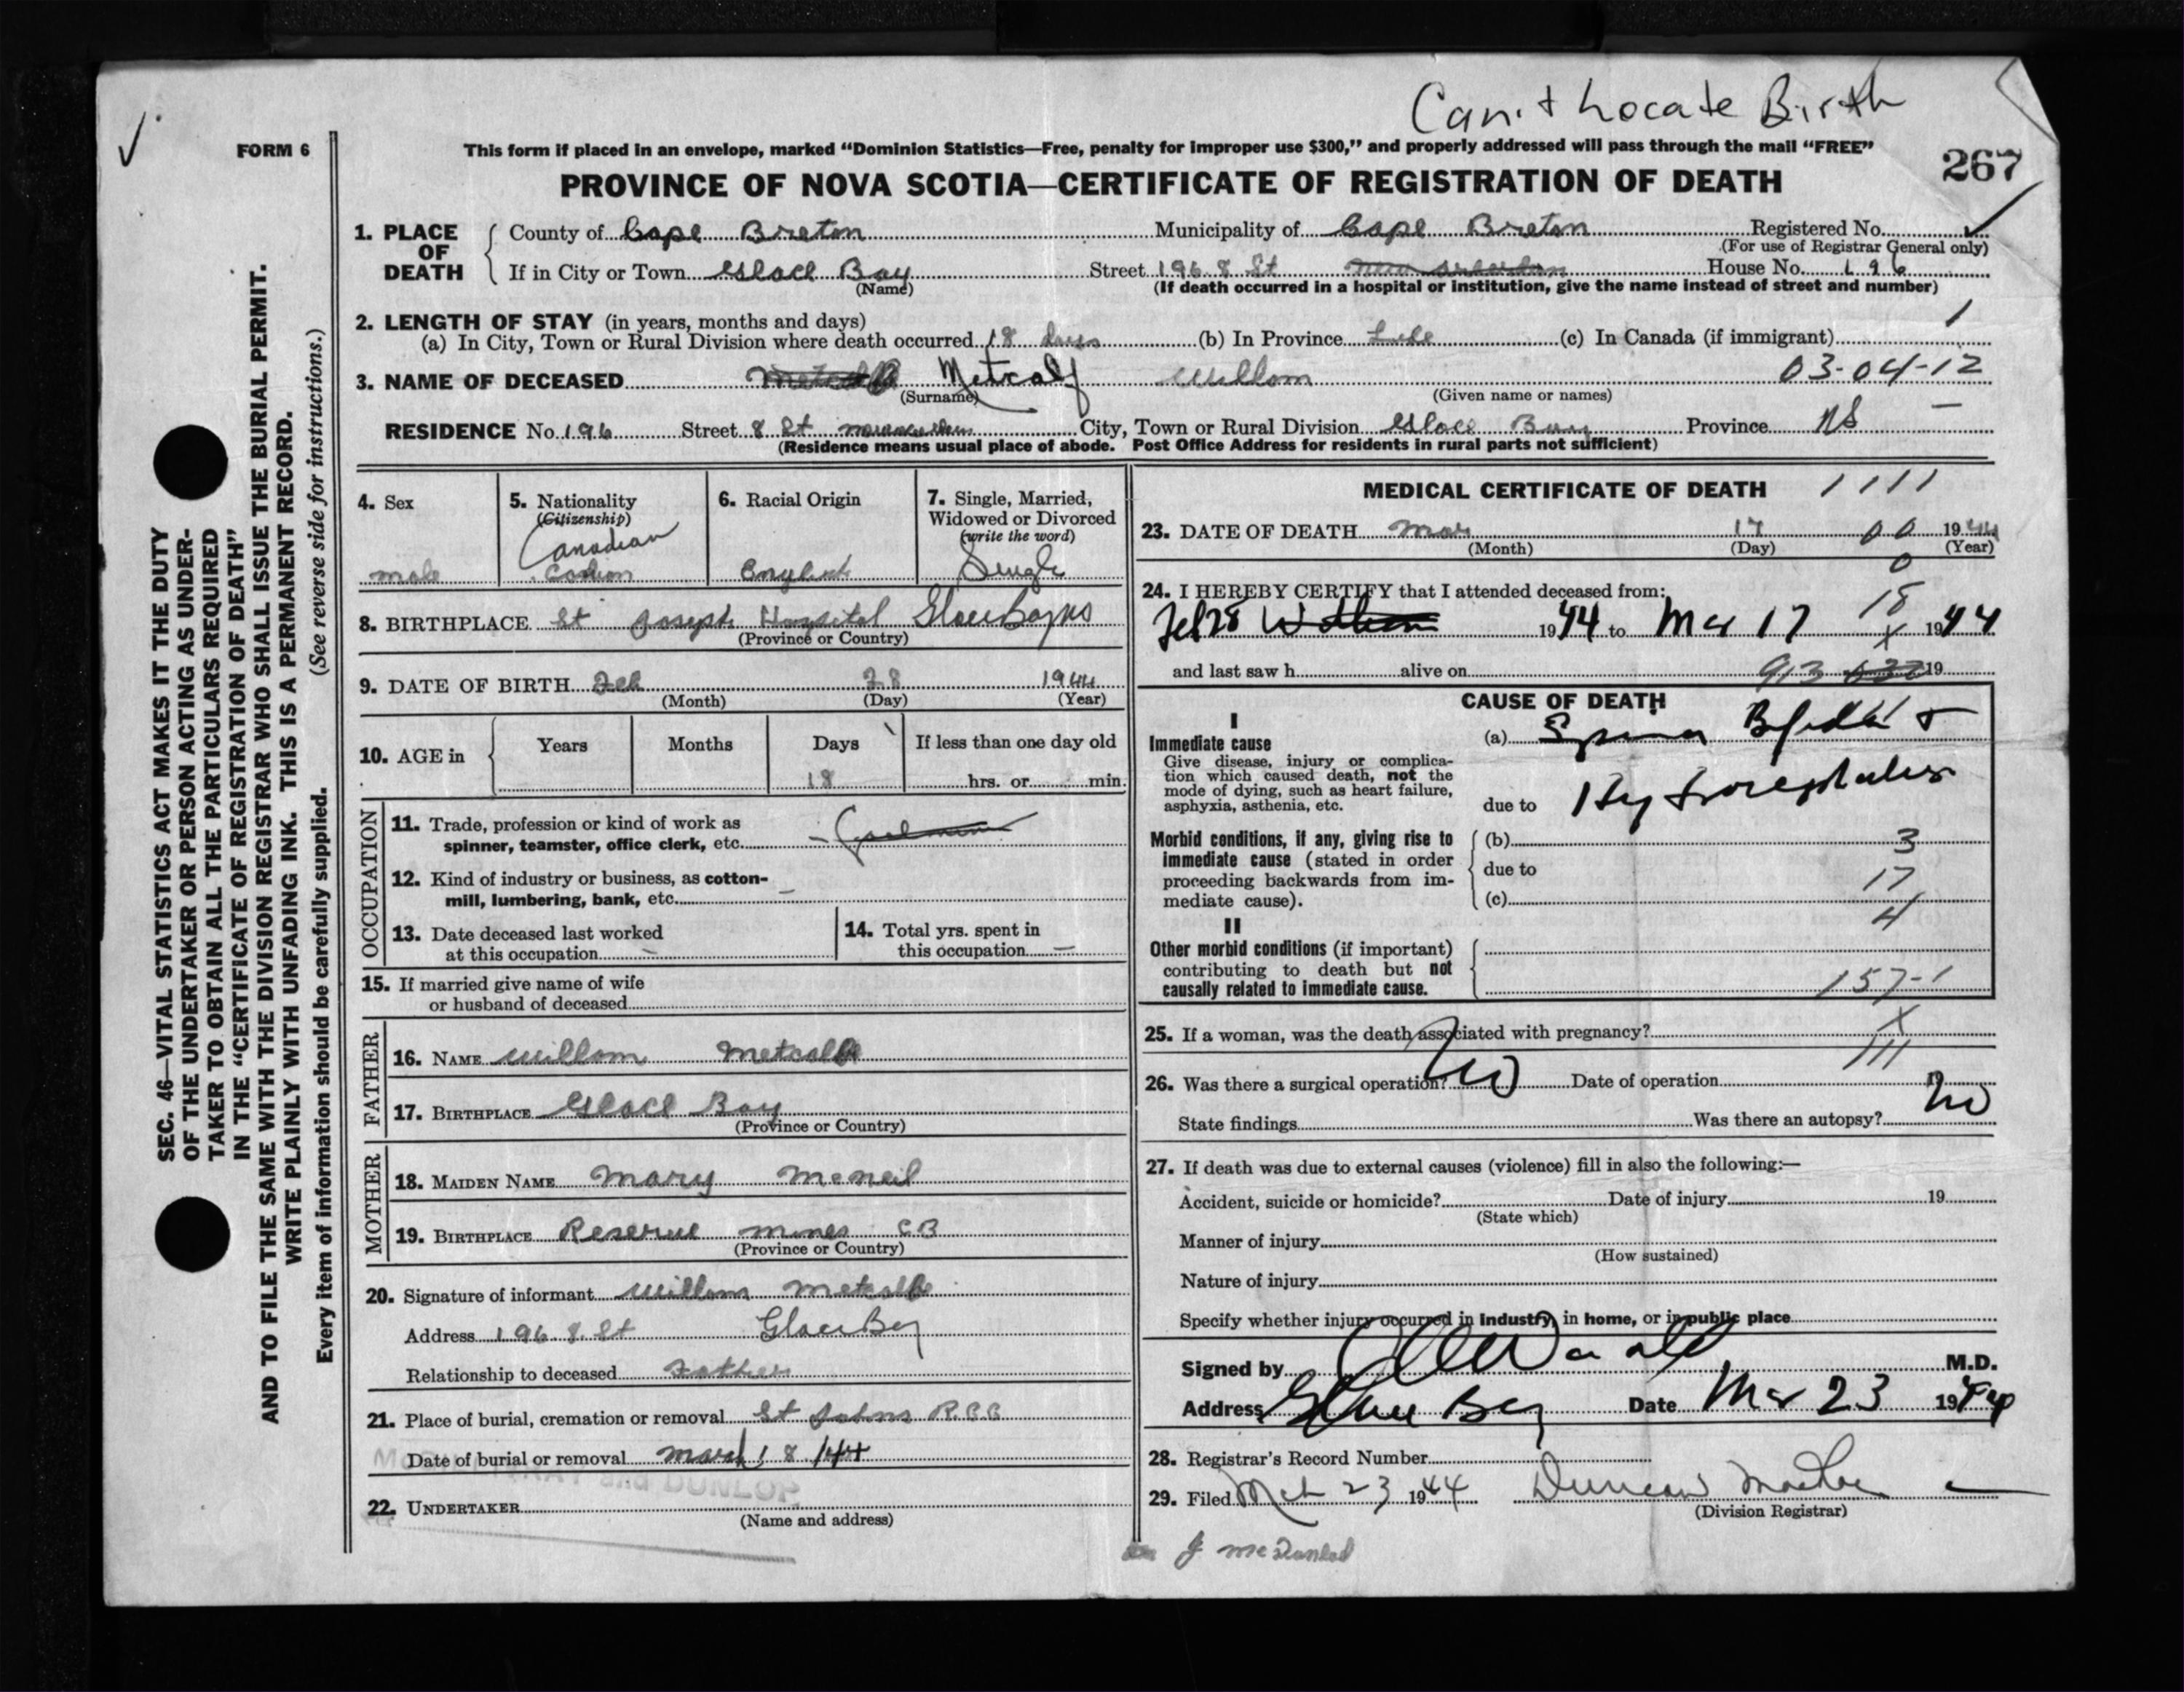 Can't Locate Birth
FORM 6
This form if placed in an envelope, marked “Dominion Statistics—Free, penalty for improper use $300,” and properly addressed will pass through the mail “FREE”
267
PROVINCE OF NOVA SCOTIA—CERTIFICATE OF REGISTRATION OF DEATH
SEC. 46—VITAL STATISTICS ACT MAKES IT THE DUTY
OF THE UNDERTAKER OR PERSON ACTING AS UNDER-
TAKER TO OBTAIN ALL THE PARTICULARS REQUIRED
IN THE “CERTIFICATE OF REGISTRATION OF DEATH”
AND TO FILE THE SAME WITH THE DIVISION REGISTRAR WHO SHALL ISSUE THE BURIAL PERMIT.
WRITE PLAINLY WITH UNFADING INK. THIS IS A PERMANENT RECORD.
Every item of information should be carefully supplied. (See reverse side for instructions.)
1. PLACE OF DEATH County of Cape Breton Municipality of Cape Breton Registered No.
(For use of Registrar General only)
If in City or Town Glace Bay Street 196 8 St House No. 196
(Name) (If death occurred in a hospital or institution, give the name instead of street and number)
2. LENGTH OF STAY (in years, months and days) 1
(a) In City, Town or Rural Division where death occurred 18 days (b) In Province Life (c) In Canada (if immigrant)
3. NAME OF DECEASED Metcalf Willom 03-04-12
(Surname) (Given name or names)
RESIDENCE No. 196 Street 8 St City, Town or Rural Division Glace Bay Province NS
(Residence means usual place of abode. Post Office Address for residents in rural parts not sufficient)
4. Sex male
5. Nationality (Citizenship) Canadian
6. Racial Origin English
7. Single, Married, Widowed or Divorced (write the word) Single
8. BIRTHPLACE St Joseph Hospital Glace Bay NS
(Province or Country)
9. DATE OF BIRTH Feb 28 1944
(Month) (Day) (Year)
10. AGE in Years Months Days If less than one day old
18 hrs. or min.
OCCUPATION
11. Trade, profession or kind of work as
spinner, teamster, office clerk, etc.
12. Kind of industry or business, as cotton-
mill, lumbering, bank, etc. —
13. Date deceased last worked
at this occupation —
14. Total yrs. spent in
this occupation —
15. If married give name of wife
or husband of deceased
FATHER
16. NAME Willom Metcalf
17. BIRTHPLACE Glace Bay
(Province or Country)
MOTHER
18. MAIDEN NAME Mary McNeil
19. BIRTHPLACE Reserve Mines C B
(Province or Country)
20. Signature of informant Willom Metcalf
Address 196 8 St Glace Bay
Relationship to deceased Father
21. Place of burial, cremation or removal St Johns
Date of burial or removal March 18/44
and DUNLOP
22. UNDERTAKER
(Name and address)
MEDICAL CERTIFICATE OF DEATH 1111
23. DATE OF DEATH Mar 17 00 1944
(Month) (Day) (Year)
0
24. I HEREBY CERTIFY that I attended deceased from:
Feb 28 1944 to Mar 17 1944
18
X
and last saw h alive on 913 19
CAUSE OF DEATH
I
Immediate cause
Give disease, injury or complica-
tion which caused death, not the
mode of dying, such as heart failure,
asphyxia, asthenia, etc.
(a) Spina Bifida +
due to Hydrocephalus
Morbid conditions, if any, giving rise to
immediate cause (stated in order
proceeding backwards from im-
mediate cause).
(b) 3
due to 17
(c) 4
II
Other morbid conditions (if important)
contributing to death but not
causally related to immediate cause.
157-1
25. If a woman, was the death associated with pregnancy? X
111
26. Was there a surgical operation? No Date of operation
State findings Was there an autopsy? No
27. If death was due to external causes (violence) fill in also the following:—
Accident, suicide or homicide? Date of injury 19
(State which)
Manner of injury
(How sustained)
Nature of injury
Specify whether injury occurred in industry, in home, or in public place
Signed by M.D.
Address Glace Bay Date Mar 23 1944
28. Registrar's Record Number
29. Filed Mch 23 1944 Duncan
(Division Registrar)
J McDonald